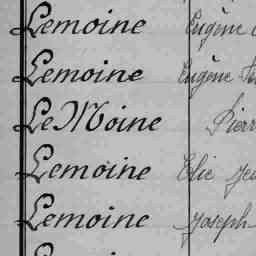 Lemoine Eugène
Lemoine Eugène
Le Moine Pierr
Lemoine Elie Je
Lemoine Joseph